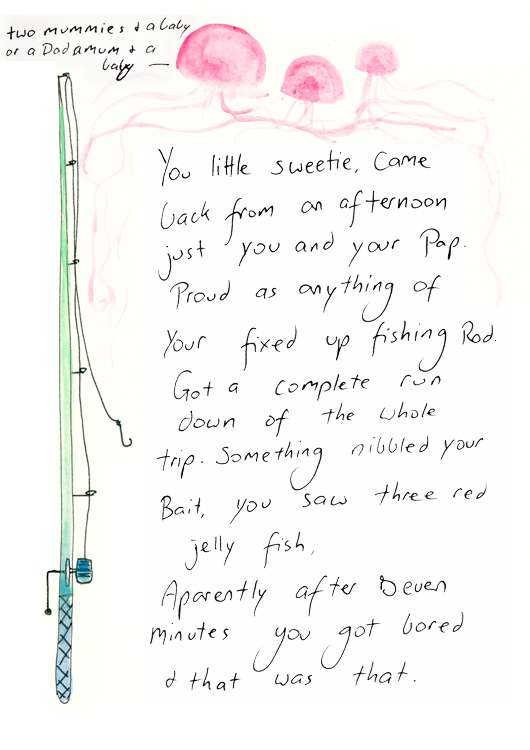 two mummies & a baby
or a Dad a mum & a
baby —
You little sweetie, Came
back from an afternoon
just you and your Pap.
Proud as anything of
Your fixed up fishing Rod.
Got a complete run
down of the whole
trip. Something nibbled your
Bait, you saw three red
jelly fish,
Aparently after Seven
minutes you got bored
& that was that.